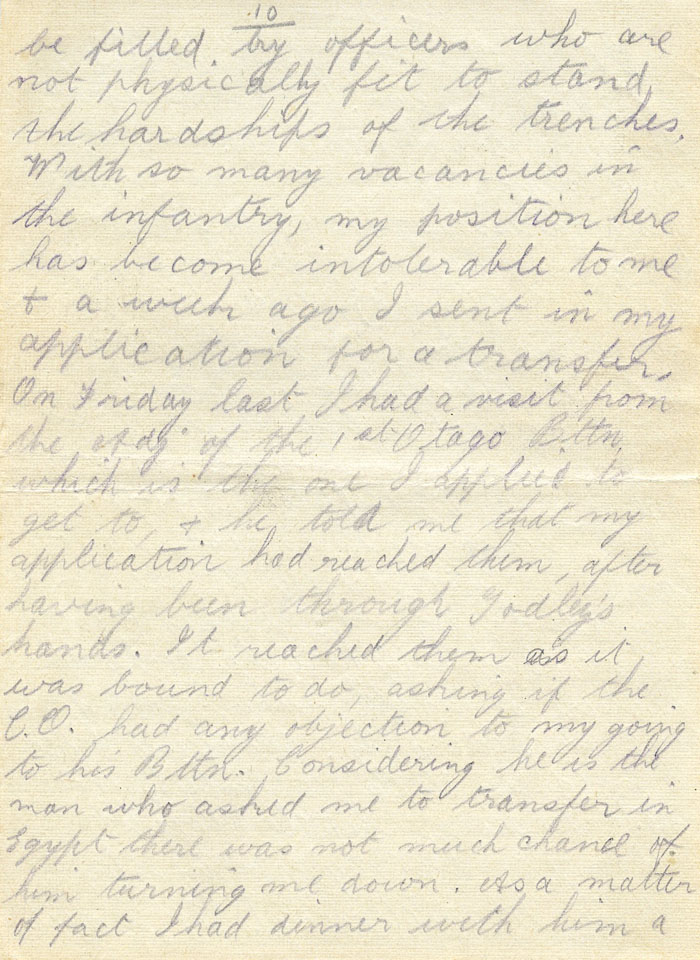 10
be filled by officers who are
not physically fit to stand
the hardships of the trenches.
With so many vacancies in
the infantry, my position here
has become intolerable to me
+ a week ago I sent in my
application for a transfer.
On Friday last I had a visit from
the of the 1st Otago Bttn,
which is the one I applied to
get to, + he told me that my
application had reached them, after
having been through Godley's
hands. It reached them as it
was bound to do, asking if the
C.O. had any objection to my going
to his Bttn. Considering he is the
man who asked me to transfer in
Egypt there was not much chance of
him turning me down. As a matter
of fact I had dinner with him a